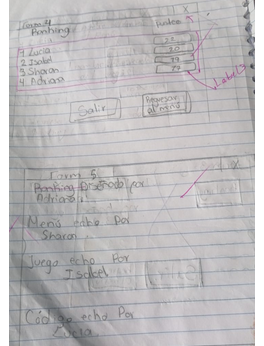 Form 4
Ranking
Puntos
X
1 Lucia
2 Isabel
3 Sharon
4 Adriana
Labels
Salir
Regresar
al menú
Form 5
Diseñado por
Adriana
X
Menú echo Por
Sharon
Juego echo Por
Isabel
Código echo Por
Lucia